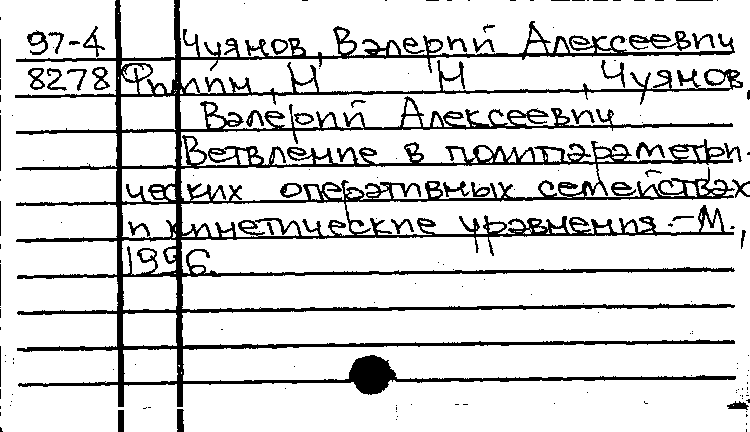 97-4 Чуянов, Валерий Алексеевич
8278 Филин, М М , Чуянов,
Валерий Алексеевич
Ветвление в полипараметри-
ческих оперативных семействах
и кинетические уравнения.-М.,
1996.